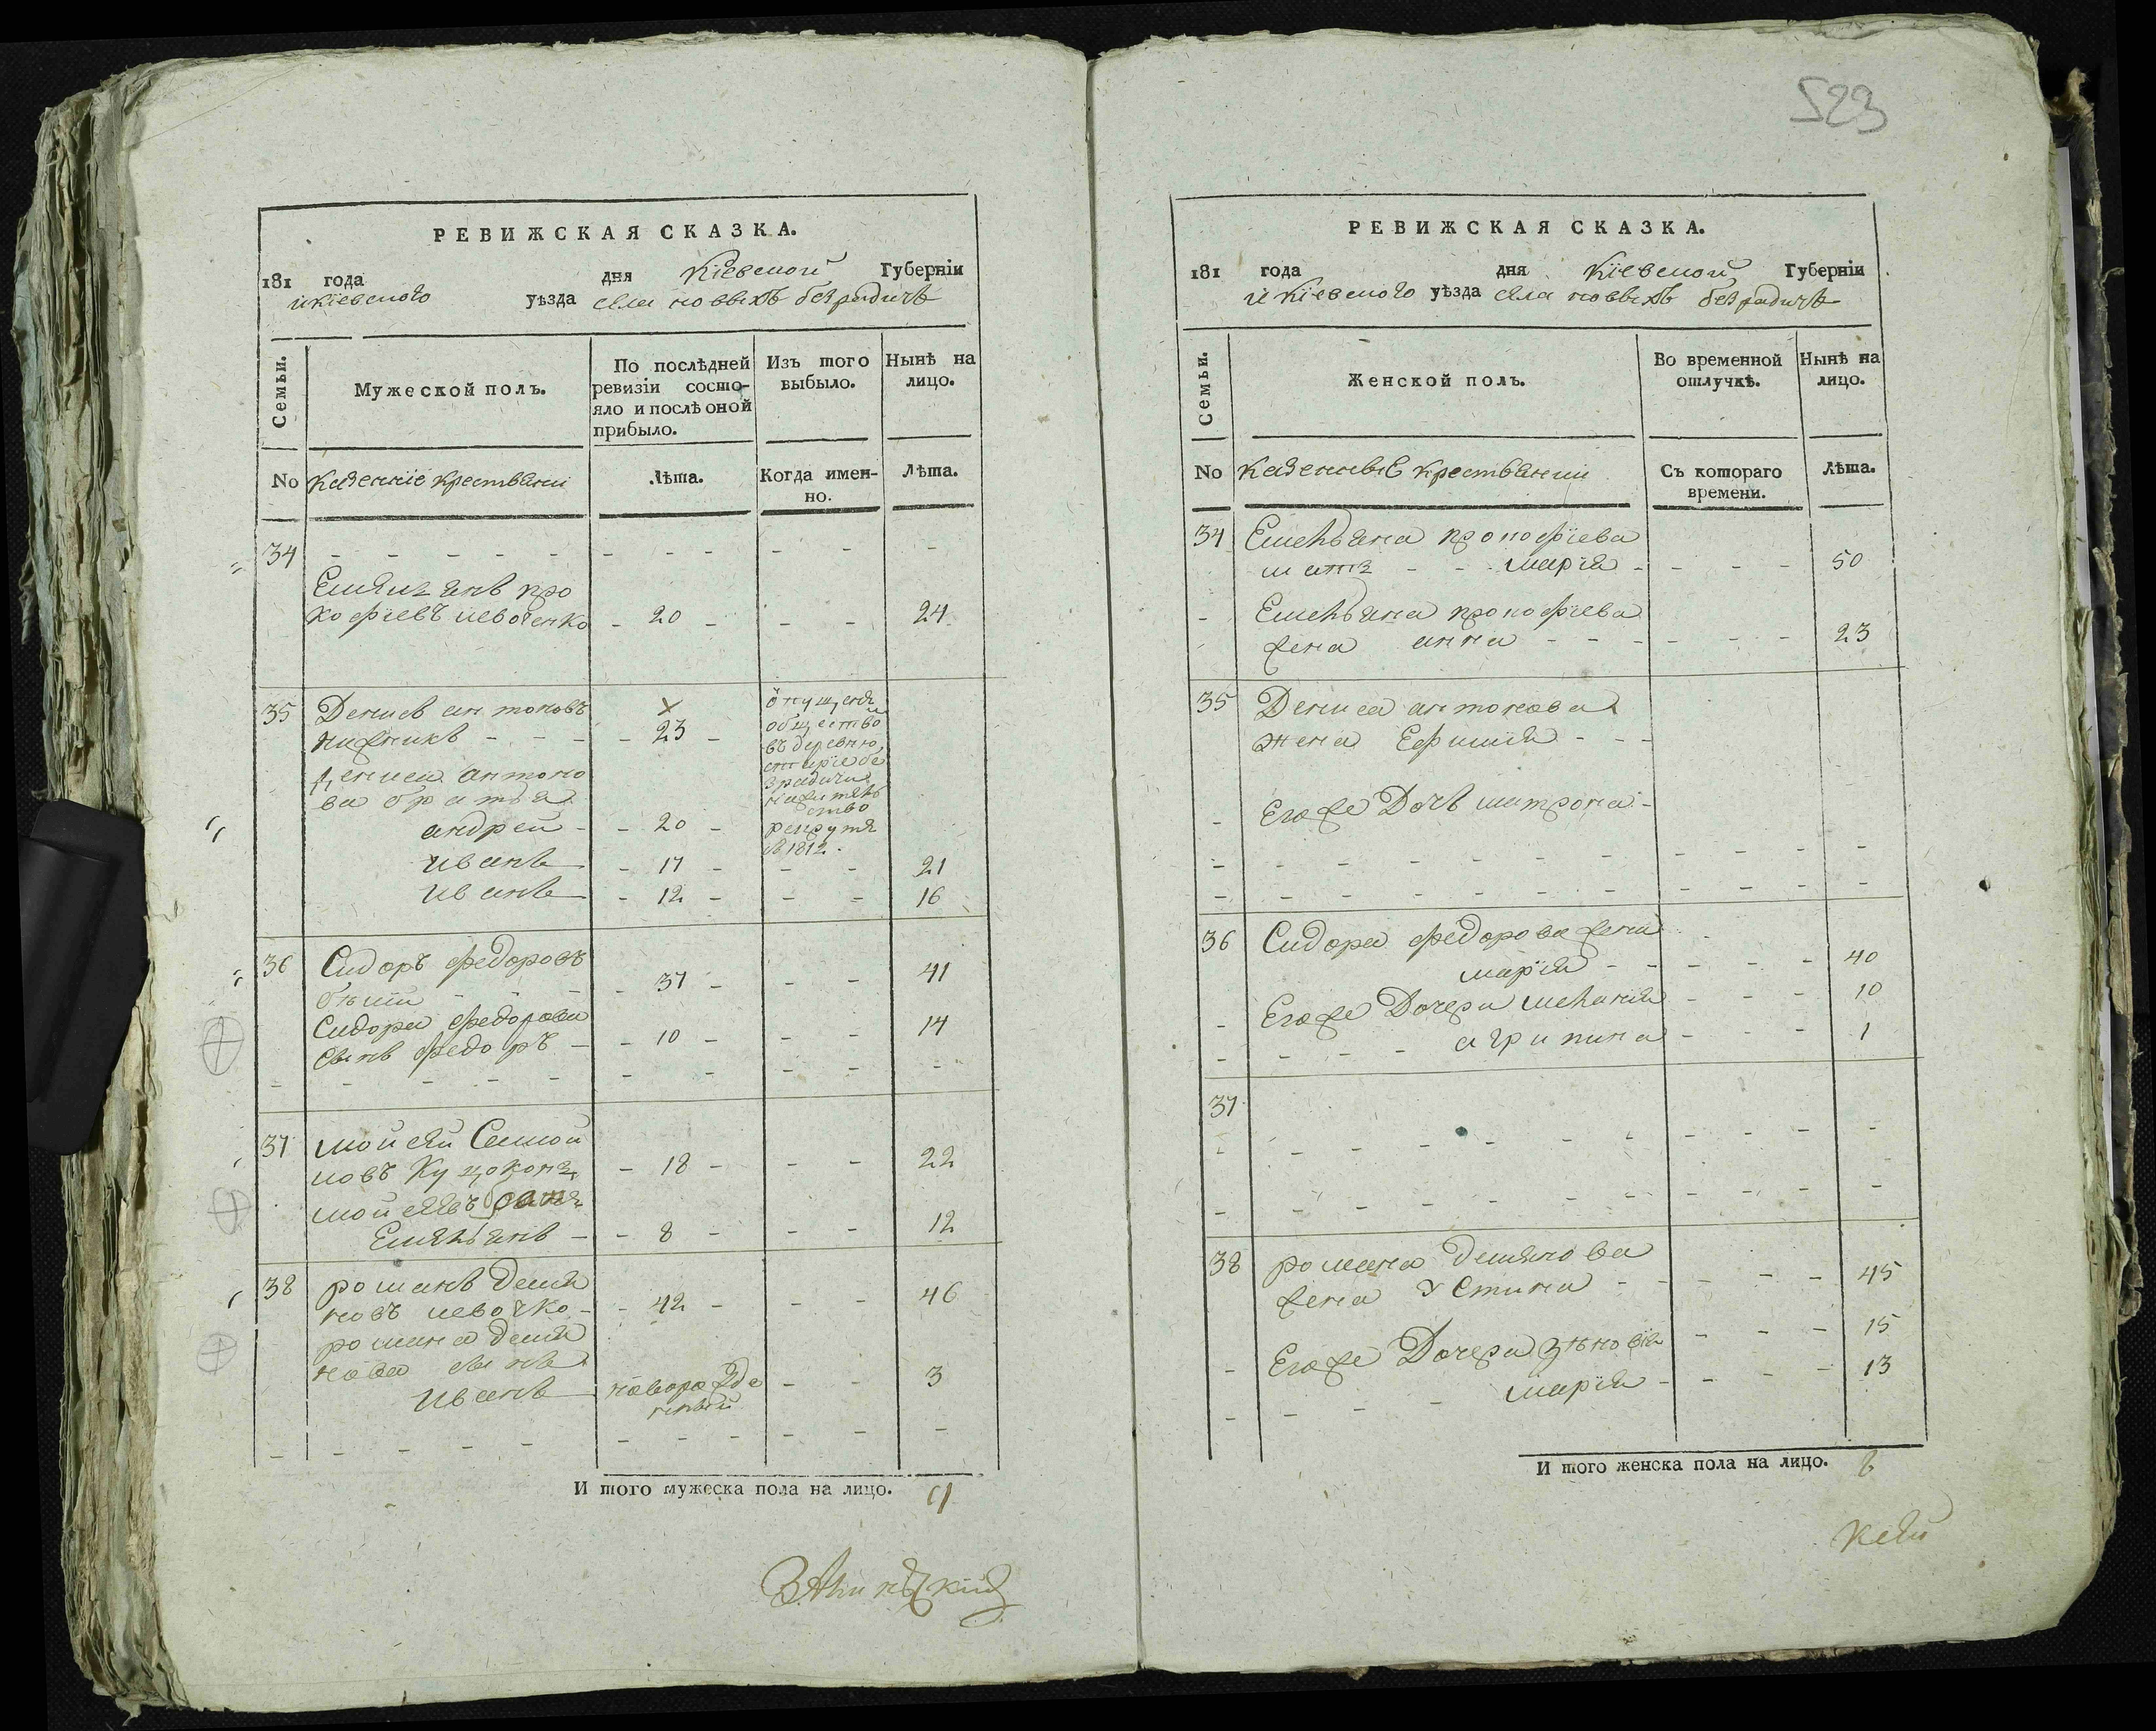 523
РЕВИЖСКАЯ СКАЗКА.
181 года дня Кіевской Губерніи
и кіевского уѣзда села новыхъ безрадичъ
Семьи.
Мужеской полъ.
По послѣдней
ревизіи состо-
яло и послѣ оной
прибыло.
Изъ того
выбыло.
Нынѣ на
лицо.
No Казенніе крестьяни
Лѣта.
Когда имен-
но.
Лѣта.
34 - - - - - - - - - - -
Емельянъ про
кофіевъ - 20 - - - 24
35 Денисъ антоновъ
- - - 23 -
Дениса антоно
ва братья
андрей - - 20 -
иванъ - 17 - - - 21
иванъ - 12 - - - 16
обществo
въ деревню
старіе бе
зрадичи
рекрутъ
в 1812.
36 Сидоръ федоровъ
- 37 - - - 41
Сидора федорова
сынъ федоръ - - 10 - - - 14
- - - - - - - - - -
37 мойсей Семіой
новъ - 18 - - - 22
мойсеевъ братъ
Емельянъ - - 8 - - - 12
38 романъ демя
новъ - 42 - - - 46
романа демя
нова сынъ
иванъ новорожде - - 3
нный
- - - - - - - - - - -
И того мужеска пола на лицо.
РЕВИЖСКАЯ СКАЗКА.
181 года дня Кіевской Губерніи
и кіевского уѣзда села новыхъ безрадичъ
Семьи.
Женской полъ.
Во временной
отлучкѣ.
Нынѣ на
лицо.
No Казенные крестьянии
Съ котораго
времени.
Лѣта.
34 Емельяна прокофіева
мать - - марія - - - - 50
- Емельяна прокофіева
жена анна - - - - - - 23
35 Дениса антонова
жена Ефимія - - -
- Егоже Дочь матрона -
36 Сидора федорова жена
марія - - - - - 40
- Егоже Дочери меланія - - - 10
- - - - агрипина - - - 1
37
38 романа демянова
жена Устина - - - - - 45
- Егоже Дочери зѣновія - - - 15
- - - - марія - - - - 13
И того женска пола на лицо. 8